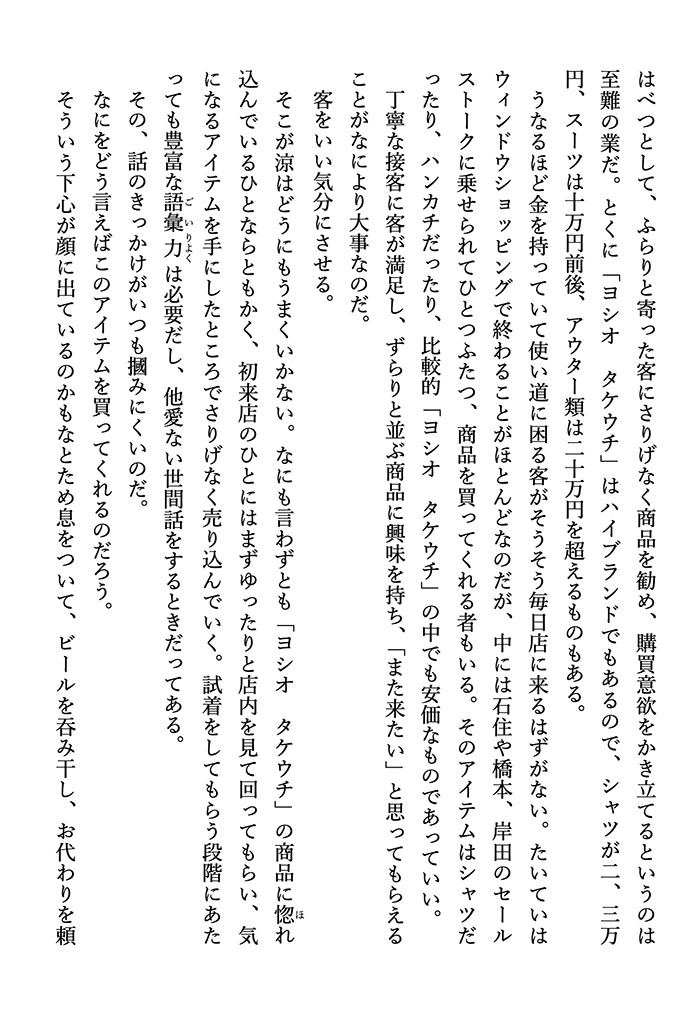 はべつとして、ふらりと寄った客にさりげなく商品を勧め、購買意欲をかき立てるというのは
至難の業だ。とくに「ヨシオ　タケウチ」はハイブランドでもあるので、シャツが二、三万
円、スーツは十万円前後、アウター類は二十万円を超えるものもある。
　うなるほど金を持っていて使い道に困る客がそうそう毎日店に来るはずがない。たいていは
ウィンドウショッピングで終わることがほとんどなのだが、中には石住や橋本、岸田のセール
ストークに乗せられてひとつふたつ、商品を買ってくれる者もいる。そのアイテムはシャツだ
ったり、ハンカチだったり、比較的「ヨシオ　タケウチ」の中でも安価なものであっていい。
　丁寧な接客に客が満足し、ずらりと並ぶ商品に興味を持ち、「また来たい」と思ってもらえる
ことがなにより大事なのだ。
　客をいい気分にさせる。
　そこが涼はどうにもうまくいかない。なにも言わずとも「ヨシオ　タケウチ」の商品に惚れ
込んでいるひとならともかく、初来店のひとにはまずゆったりと店内を見て回ってもらい、気
になるアイテムを手にしたところでさりげなく売り込んでいく。試着をしてもらう段階にあた
っても豊富な語彙力は必要だし、他愛ない世間話をするときだってある。
　その、話のきっかけがいつも摑みにくいのだ。
　なにをどう言えばこのアイテムを買ってくれるのだろう。
　そういう下心が顔に出ているのかもなとため息をついて、ビールを呑み干し、お代わりを頼